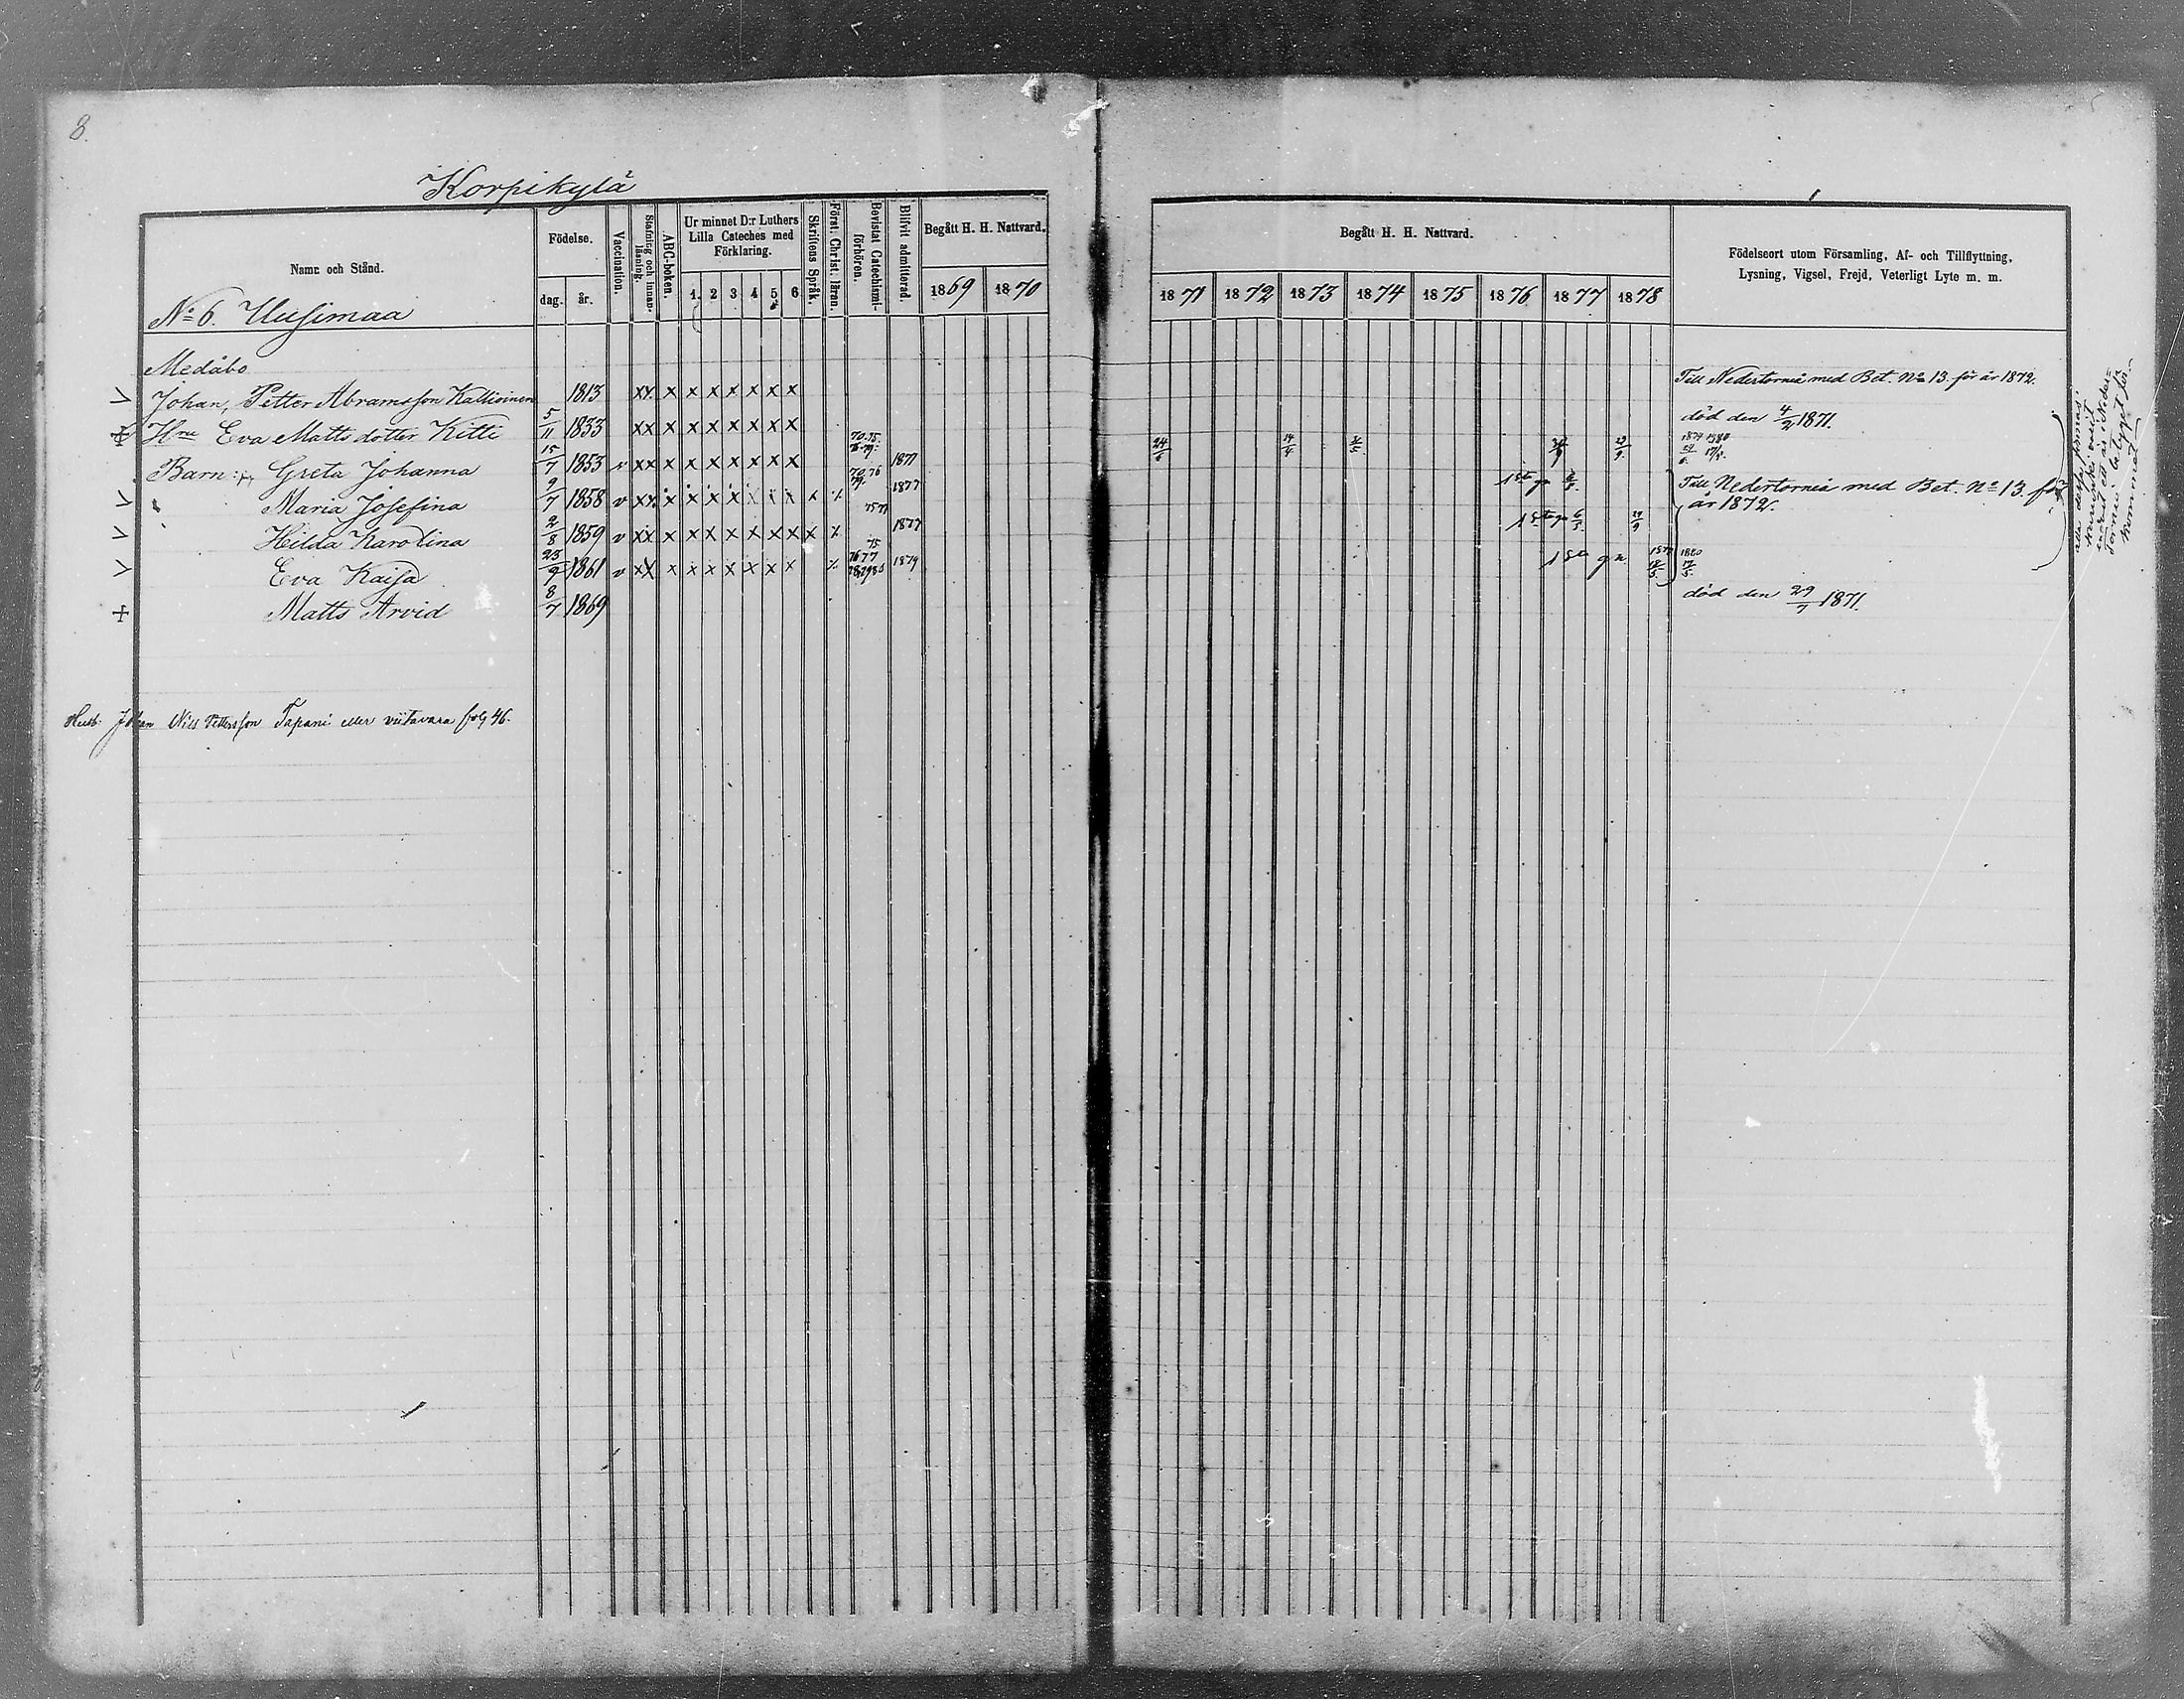 8.
Korpikylä
Namn och Stånd.
Födelse.
dag.
år.
Vaccination.
Stafning och innanläsning.
ABC-boken.
Ur minnet D:r Luthers Lilla Cateches med Förklaring.
1. 2 3 4 5 6
Skriftens Språk.
Först. Christ. läran.
Bevistat Catechismiförhören.
Blifvit admitterad.
Begått H. H. Nattvard.
1869 1870
Begått H. H. Nattvard.
1871 1872 1873 1874 1875 1876 1877 1878
Födelseort utom Församling, Af- och Tillflyttning,
Lysning, Vigsel, Frejd, Veterligt Lyte m. m.
No 6. Uusimaa
Medåbo
V Johan, Petter Abramsson Kallioinen 1813 xx x x x x x x x Till Nedertorneå med Bet. No 13. för år 1872.
+ Hru Eva Matts dotter Kitti 5/11 1833 xx x x x x x x x död den 4/2 1871.
Barn: Greta Johanna 15/7 1853 v xx x x x x x x x 70.75. 1877 24/6 1879 1880
V Maria Josefina 9/7 1858 v xx x x x x x x x x 70,76 79. 1877 1sta gn 6/5. Till Nedertorneå med Bet. No 13. för år 1872.
V Hilda Karolina 2/8 1859 v xx x x x x x x x x 75 77 1877 1sta gn 6/5
V Eva Kaisa 23/9 1861 v xx x x x x x x x 75 76 77 1879 1sta gn 1879 1880
+ Matts Arvid 8/7 1869 död den 29/7 1871.
alla dessa finnas
Husb. Johan Nils Pettersson Tapani eller viitavara folg 46.